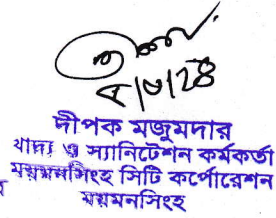 দীপক মজুমদার
খাদ্য ও স্যানিটেশন কর্মকর্তা
ময়মনসিংহ সিটি কর্পোরেশন
ময়মনসিংহ